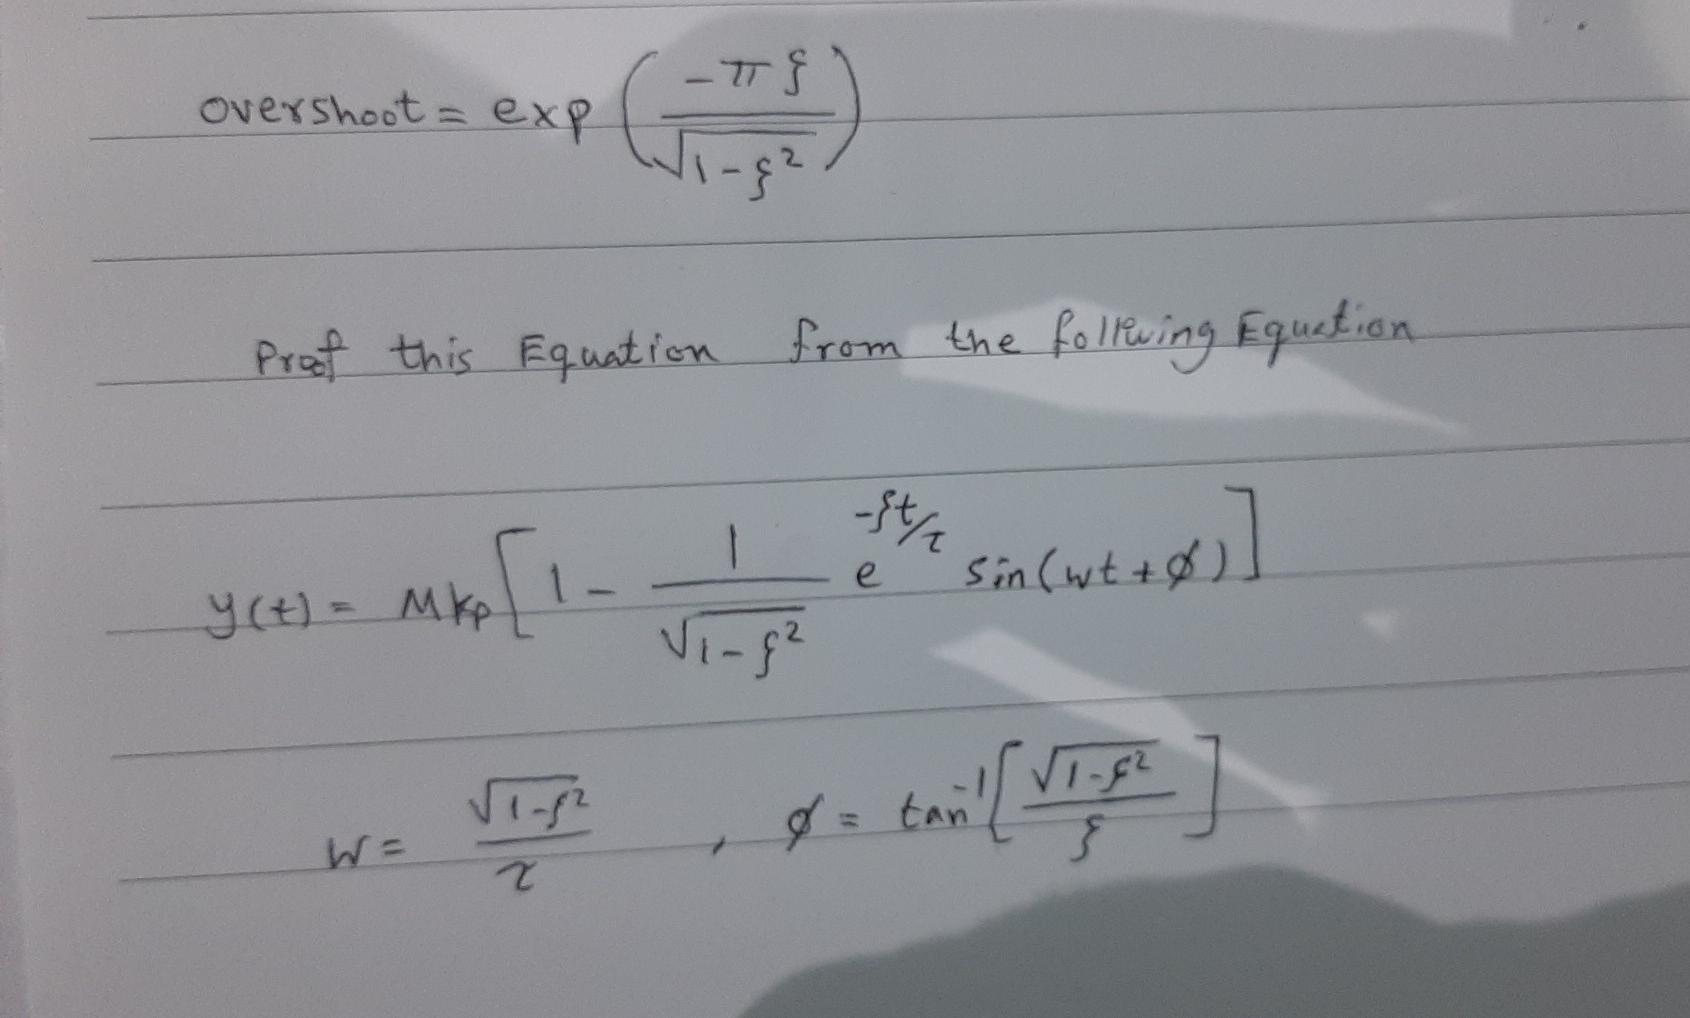 overshoot = exp ( -πξ / √1-ξ² )
Proof this Equation from the following Equation
y(t) = Mkp [ 1 - 1 / √1-ξ² e^-ξt/τ sin(wt + ϕ) ]
w = √1-ξ² / τ , ϕ = tan⁻¹ [ √1-ξ² / ξ ]